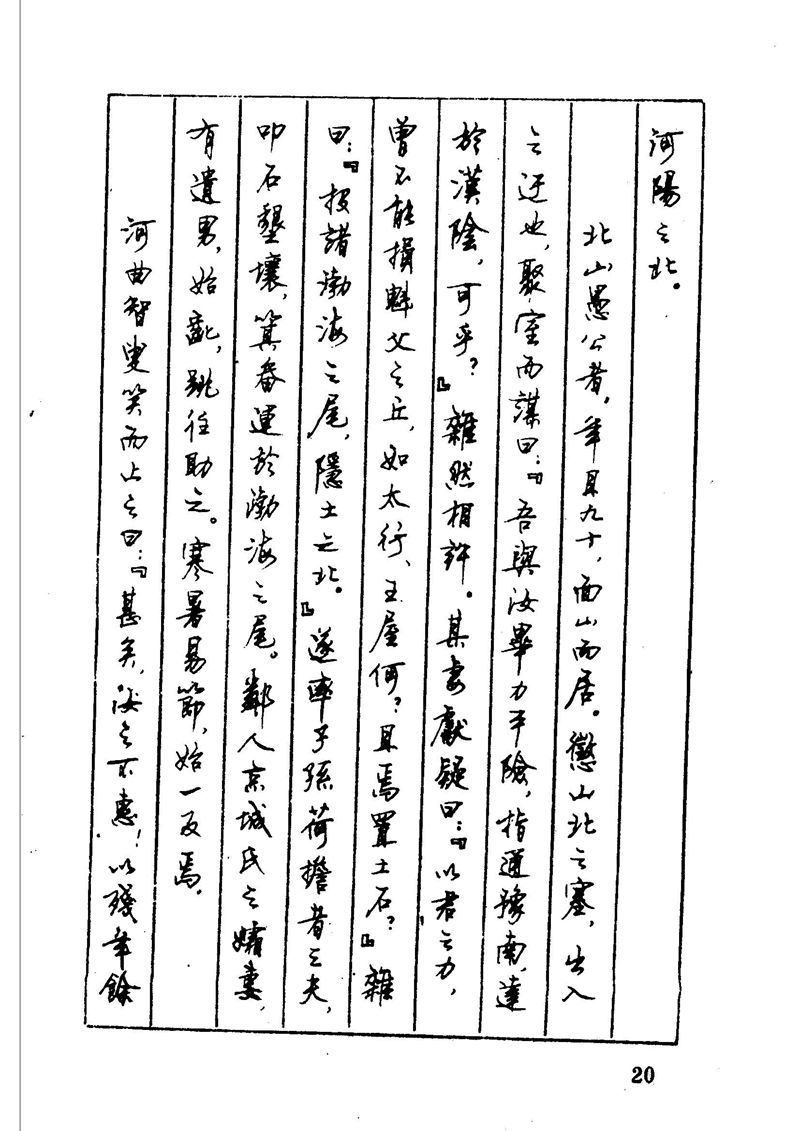 河陽之北。
北山愚公者，年且九十，面山而居。懲山北之塞，出入
之迂也，聚室而謀曰：『吾與汝畢力平險，指通豫南，達
於漢陰，可乎？』雜然相許。其妻獻疑曰：『以君之力，
曾不能損魁父之丘，如太行、王屋何？且焉置土石？』雜
曰：『投諸渤海之尾，隱土之北。』遂率子孫荷擔者三夫，
叩石墾壤，箕畚運於渤海之尾。鄰人京城氏之孀妻，
有遺男，始齔，跳往助之。寒暑易節，始一反焉。
河曲智叟笑而止之曰：『甚矣，汝之不惠！以殘年餘
20